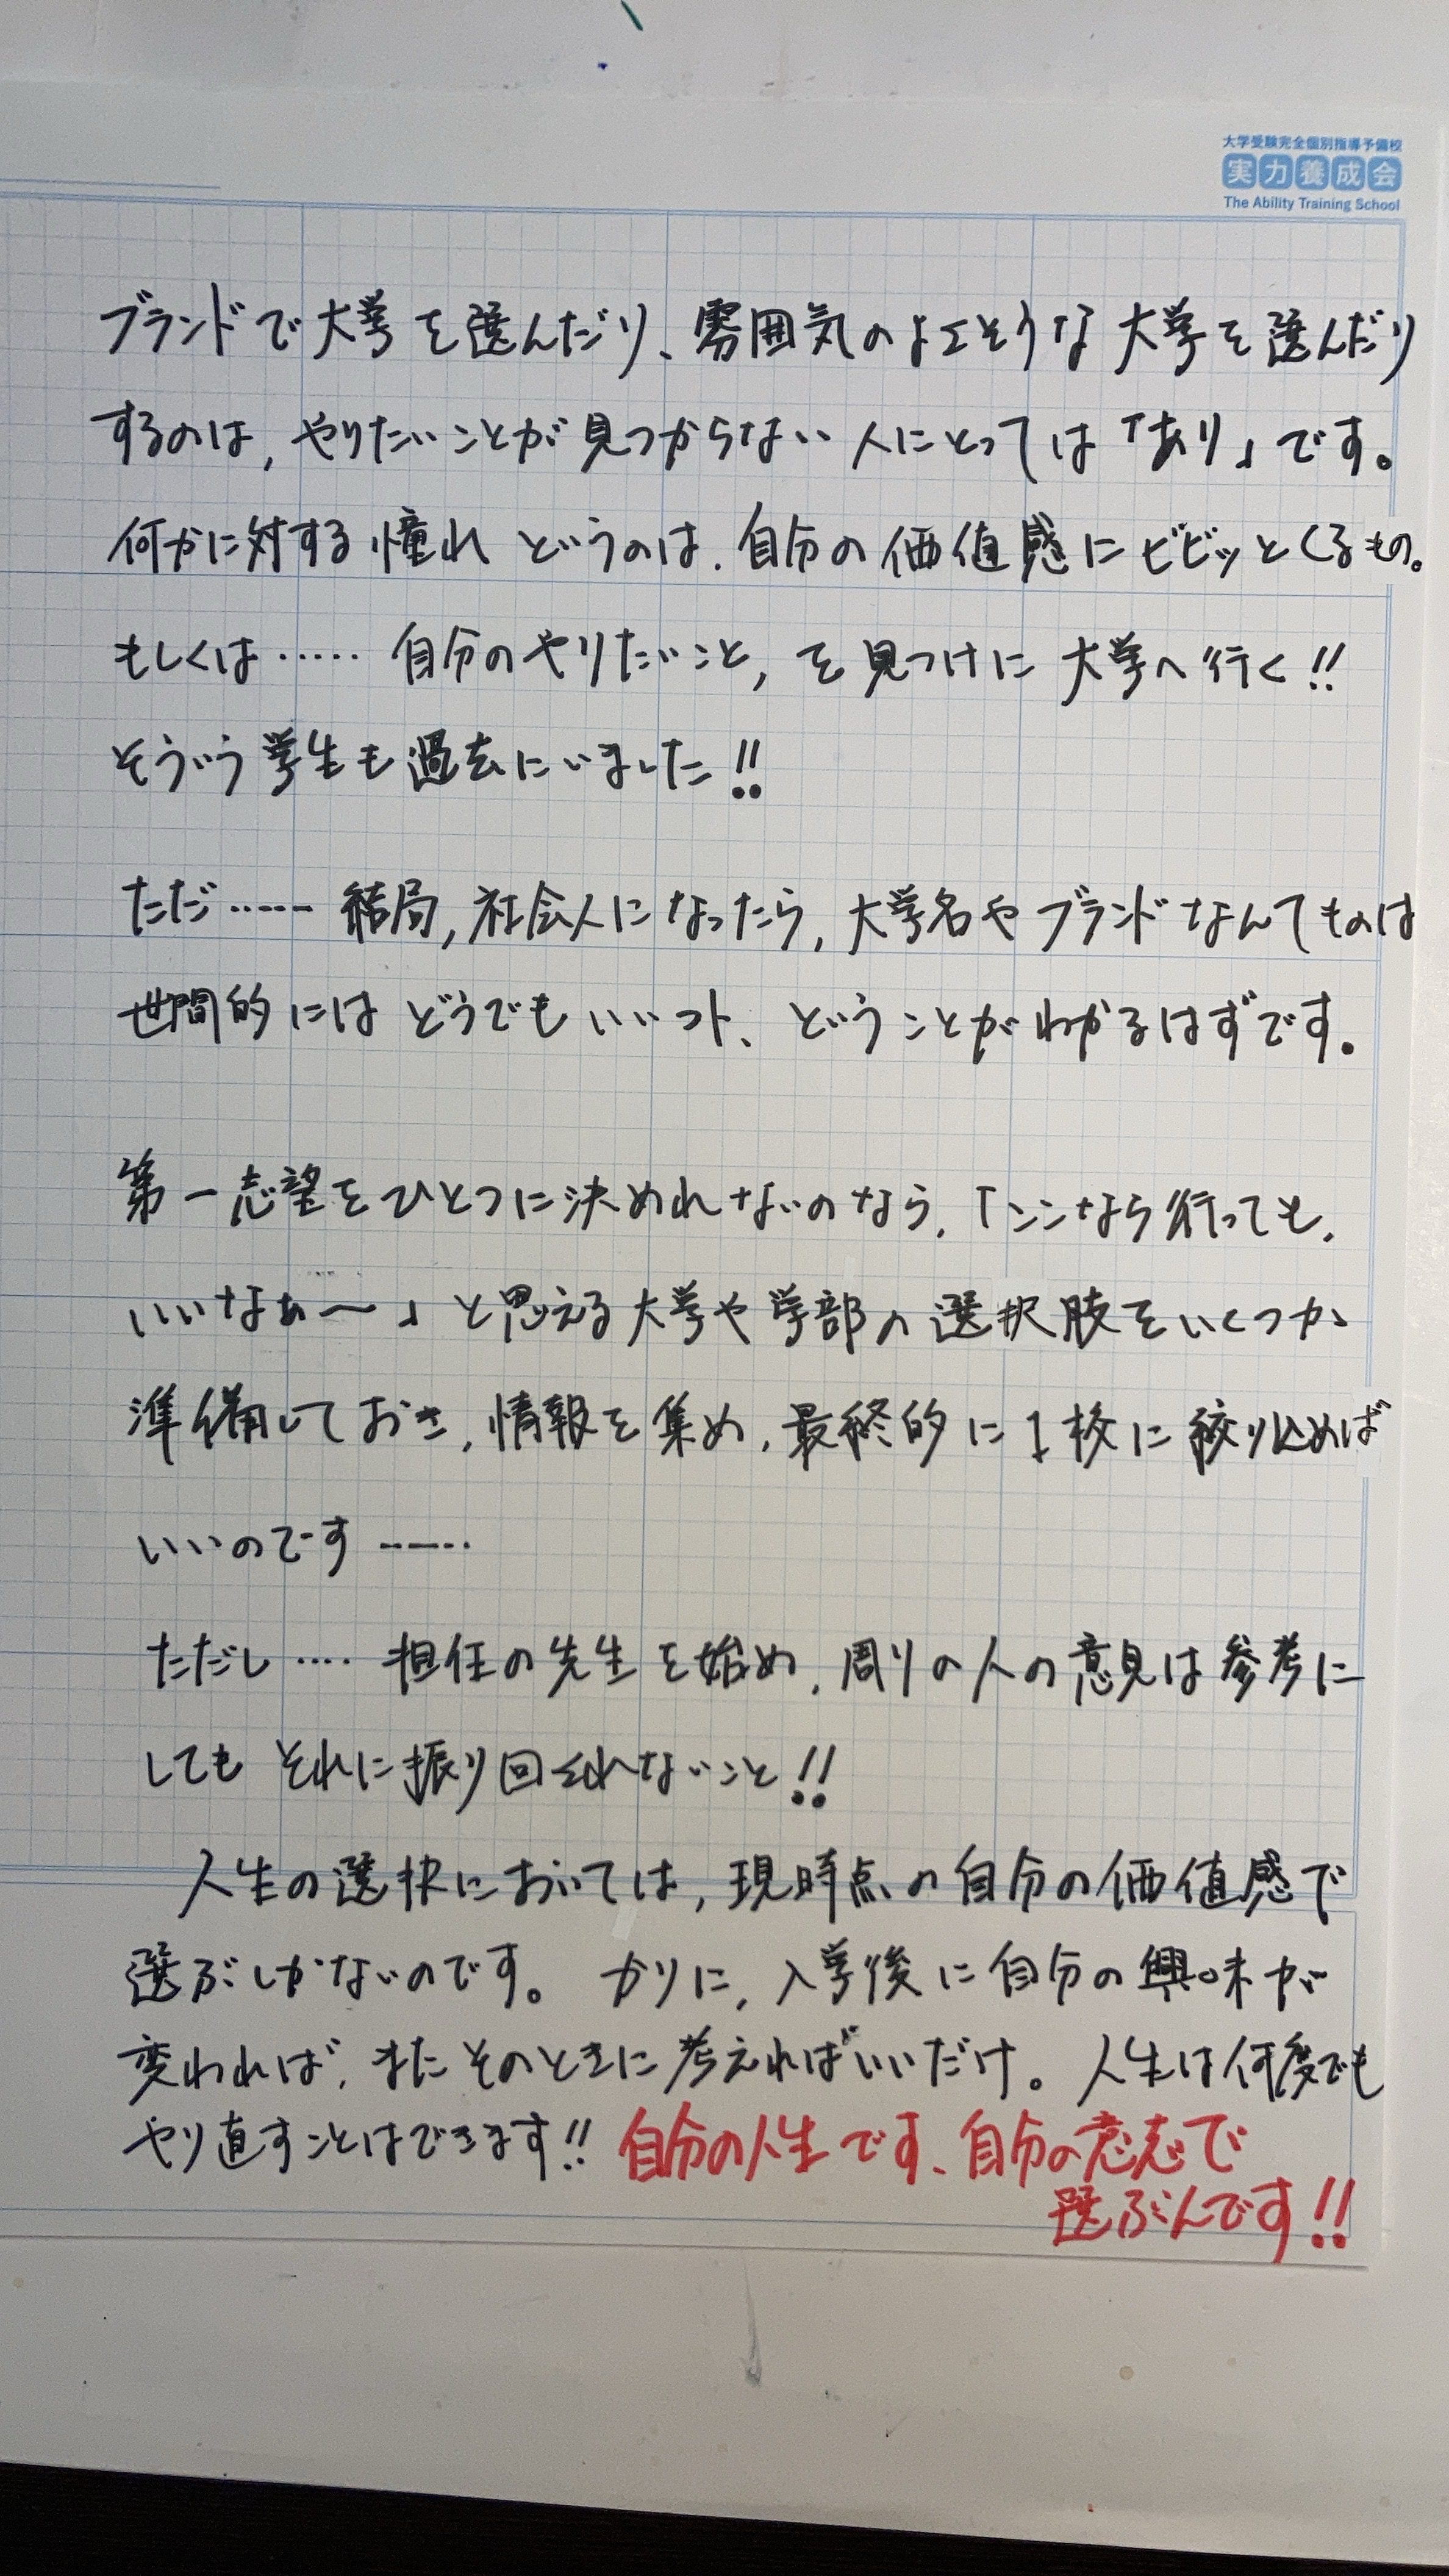 大学受験完全個別指導予備校
実力養成会
The Ability Training School
ブランドで大学を選んだり、雰囲気のよさそうな大学を選んだり
するのは,やりたいことが見つからない人にとっては「あり」です。
何かに対する憧れというのは,自分の価値感にビビッとくるもの。
もしくは……自分のやりたいこと,を見つけに大学へ行く!!
そういう学生も過去にいました!!
ただ……結局,社会人になったら,大学名やブランドなんてものは
世間的にはどうでもいいコト、ということがわかるはずです。
第一志望をひとつに決めれないのなら,「ココなら行っても,
いいなぁ〜」と思える大学や学部の選択肢をいくつか
準備しておき,情報を集め,最終的に1校に絞り込めば
いいのです……
ただし…‥担任の先生を始め,周りの人の意見は参考に
してもそれに振り回されないこと!!
人生の選択においては,現時点の自分の価値感で
選ぶしかないのです。かりに,入学後に自分の興味が
変われば,またそのときに考えればいいだけ。人生は何度でも
やり直すことはできます!!自分の人生です、自分の意志で
選ぶんです!!